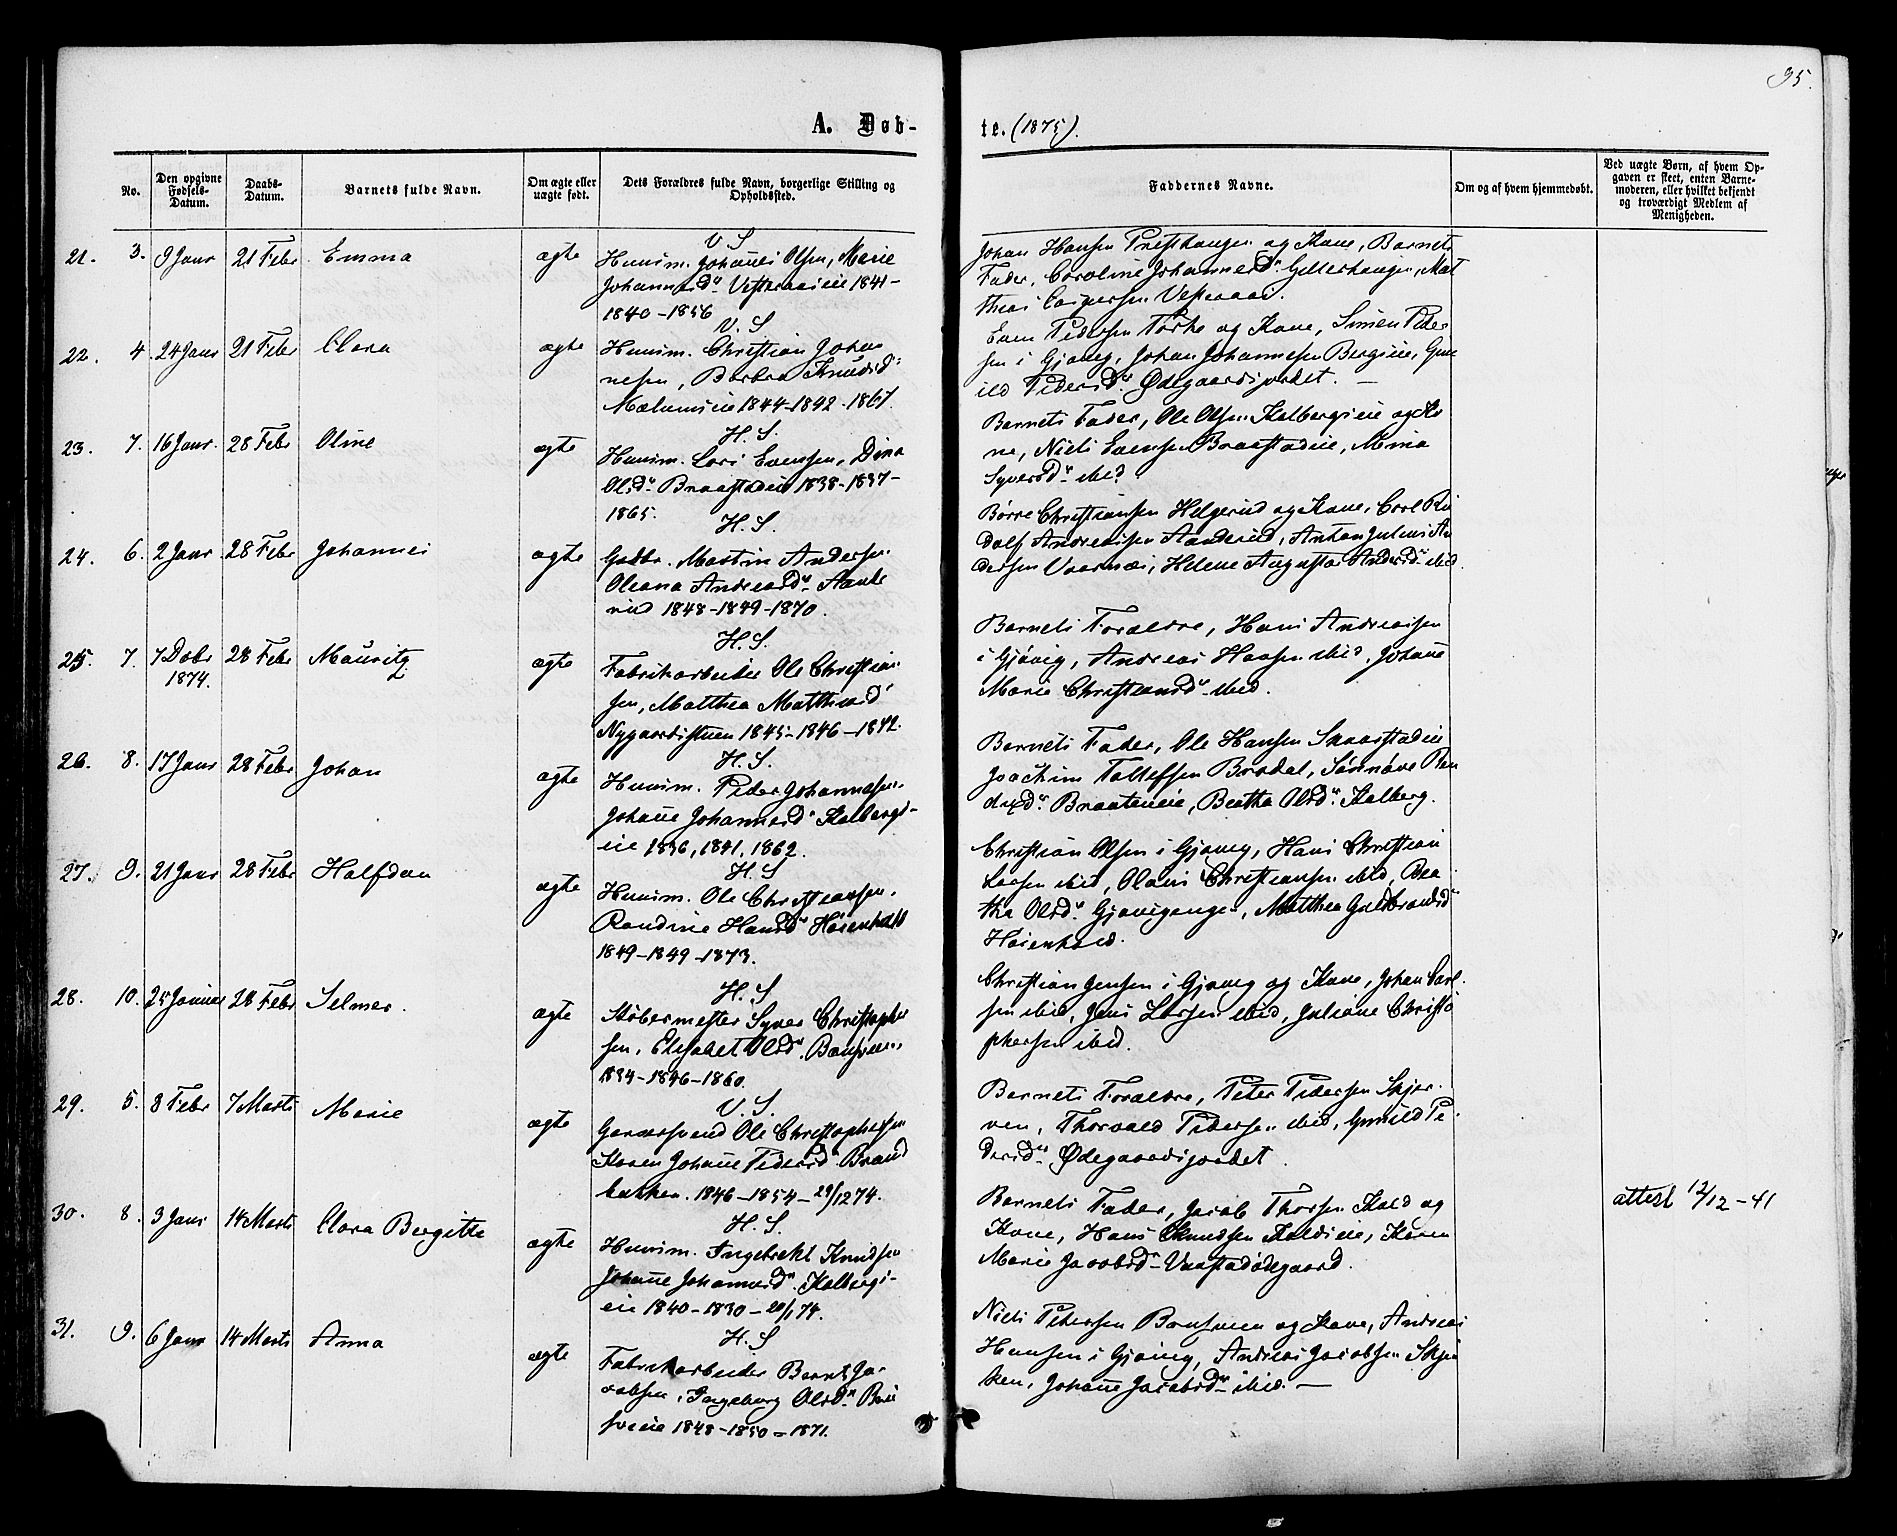 95.
A. Døb-
te. (1875).
No.
Den opgivne Fødsels-Datum.
Daabs-Datum.
Barnets fulde Navn.
Om ægte eller uægte født.
Dets Forældres fulde Navn, borgerlige Stilling og Opholdssted.
Faddernes Navne.
Om og af hvem hjemmedøbt.
Ved uægte Børn, af hvem Op-
gaven er skeet, enten Barne-
moderen, eller hvilket bekjendt
og troværdigt Medlem af
Menigheden.
21. 3. 9 Janr 21 Febr Emma ægte
V. S
Huusm. Johannes Olsen, Marie
Johannesd: Vesteraaseie 1841-
1840-1856
Johan Hansen Præsthaugen og Kone, Barnets
Fader, Caroline Johannesd: Gilterhaugen, Mat
thias Caspersen Vesteraas.
22. 4. 24 Janr 21 Febr Clara ægte
V. S
Huusm. Christian Johan
nesen, Barbra Knudsd:
Mælumseie 1844-1842-1867.
Even Pedersen Torke og Kone, Simen Peder
sen i Gjøvig, Johan Johannesen Bergseie, Gun
ild Pedersd: Ødegaardsjordet. —
23. 7. 16 Janr. 28 Febr Oline ægte
H. S.
Huusm. Lars Evensen, Dina
Olsd: Braastadeie 1838-1837-
1865.
Barnets Fader, Ole Olsen Kalbergseie og Ko
ne, Niels Evensen Braastadeie, Mina
Syversd: ibid
24. 6. 2 Janr 28 Febr Johannes ægte
H. S.
Gaardbr. Martin Andersen
Oleana Andreasd: Aande
rud 1848-1849-1870.
Børre Christiansen Helgerud og Kone, Carl Ru
dolf Andreassen Aanderud, Anton Julius An
dersen Vaarnæs, Helene Augusta Andersd: ibid.
25. 7. 7 Dcbr 1874. 28 Febr Mauritz ægte
H. S.
Fabrikarbeider Ole Christian
sen, Matthea Matthiasd:
Nygaardsstuen 1845-1846-1872.
Barnets Forældre, Hans Andreassen
i Gjøvig, Andreas Hansen ibid, Johanne
Marie Christiansd: ibid.
26. 8. 17 Janr 28 Febr Johan ægte
H. S.
Huusm. Peder Johannesen.
Johanne Johannesd: Kalbergs-
eie 1836, 1841, 1862.
Barnets Fader, Ole Hansen Skaarstadeie
Joachim Tollefsen Bredal, Sønnøve Pou
d: Braateneie, Beatha Olsd: Kalberg.
27. 9. 21 Janr 28 Febr Halfdan ægte
H. S
Huusm. Ole Christiansen.
Randine Hansd: Høienhald
1849-1849-1873.
Christian Olsen i Gjøvig, Hans Christian
Larsen ibid, Olaus Christiansen ibid, Bea
tha Olsd: Gjøvigengen, Matthea Guldbrandsd:
Høienhald.
28. 10. 25 Januar 28 Febr Selmer. ægte
H. S
Støbermester Syver Christopher
sen, Elisabet Olsd: Bansveen,
1834-1846-1860.
Christian Jensen i Gjøvig og Kone, Johan Carl-
sen ibid, Jens Larsen ibid, Juliane Christo
phersen ibid.
29. 5. 8 Febr 7 Marts Marie ægte
V. S.
Garversvend Ole Christophersen
Karen Johanne Pedersd: Brand
bakken. 1846-1854-29/12 74.
Barnets Forældre, Peter Pedersen Skjer-
ven, Thorvald Pedersen ibid, Gunild Pe-
dersd: Ødegaardsjordet.
30. 8. 3 Janr 14 Marts Clara Bergitte ægte
H. S.
Huusm. Ingebrekt Knudsen
Johanne Johannesd: Kalbergs-
eie 1840-1830-20/1 74.
Barnets Fader, Jacob Thorsen Kald og
Kone, Hans Knudsen Kaldseie, Karen
Marie Jacobsd: Vaastadødegaard.
attest 12/12-41
31. 9. 6 Janr 14 Marts Anna ægte
H. S
Fabrikarbeider Bernt Ja-
cobsen, Ingeborg Olsd: Ban
sveeie 1848-1850-1871.
Niels Petersen Bansveen og Kone, Andreas
Hansen i Gjøvig, Andreas Jacobsen Skjen
ken, Johanne Jacobsd: ibid. —